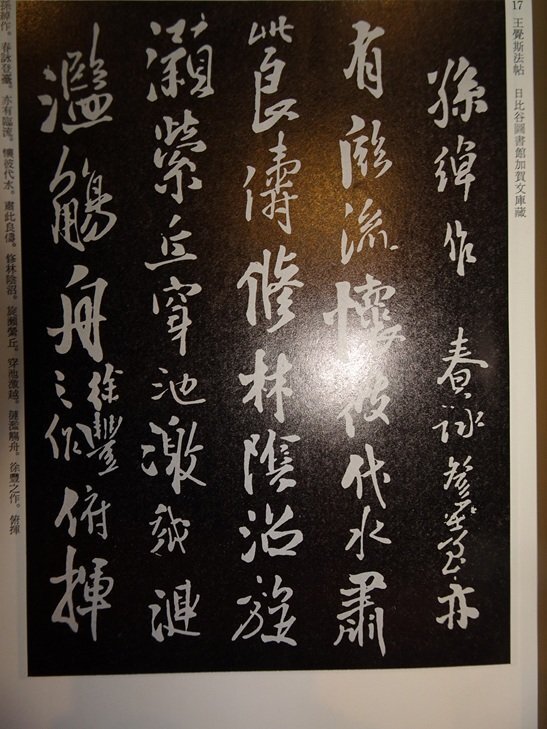 17 王覺斯法帖 日比谷圖書館加賀文庫藏
孫綽作 春詠登臺亦
有臨流懷彼代水肅
此良儔修林陰沼旋
瀨縈丘穿池激越漣
濫觴舟 徐豐之作 俯揮
孫綽作。春詠登臺。亦有臨流。懷彼代水。肅此良儔。修林陰沼。旋瀨縈丘。穿池激越。漣濫觴舟。徐豐之作。俯揮